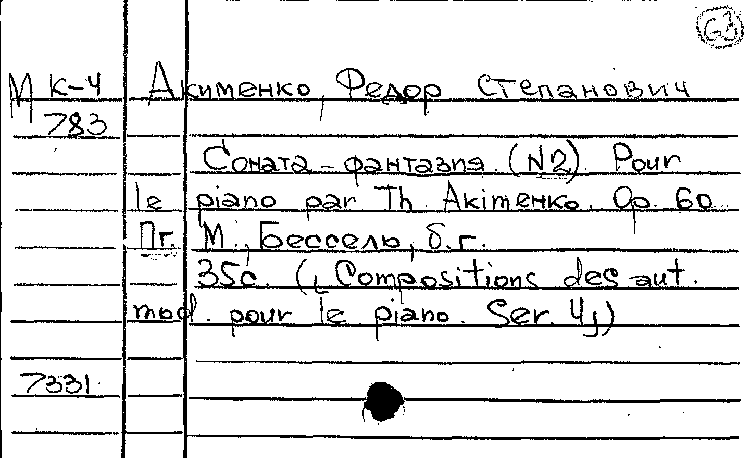 63
М К-4 Акименко, Федор Степанович
783
Соната-фантазия. (N2). Pour
le piano par Th. Akimenko. Op. 60.
Пг. М., Бессель, б.г.
35с. („Compositions des aut.
mod. pour le piano. Ser. 4„)
7331.